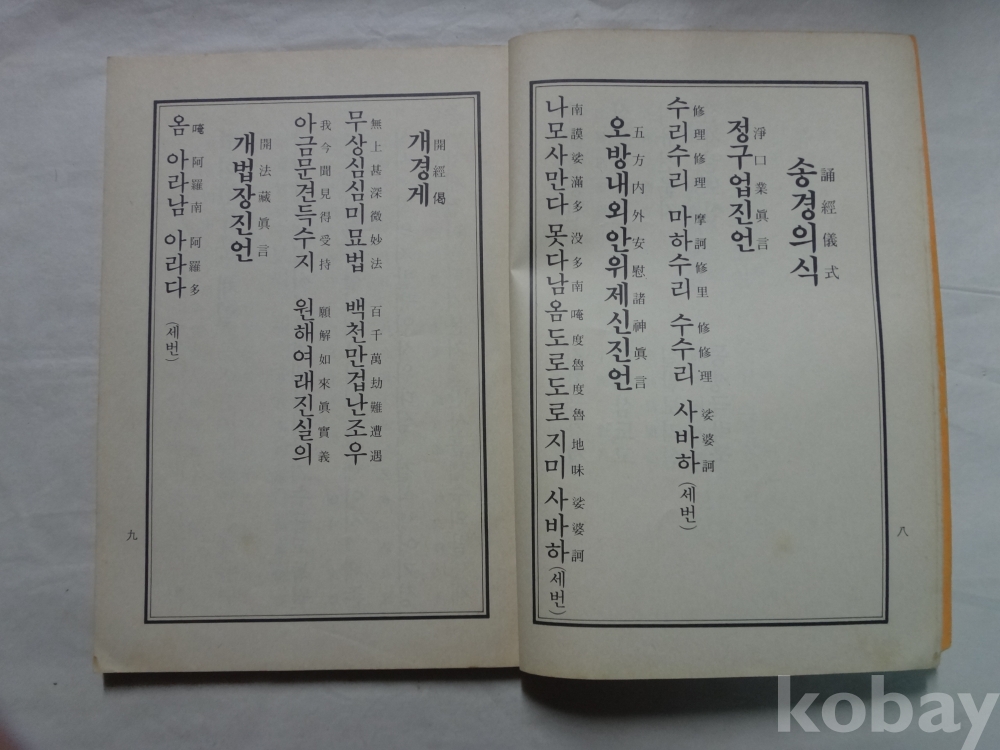 송경의식
誦經儀式
정구업진언
淨口業眞言
수리수리 마하수리 수수리 사바하 (세번)
修理修理 摩訶修里 修修理 娑婆訶
오방내외안위제신진언
五方内外安慰諸神眞言
나모사만다 못다남 옴 도로도로 지미 사바하 (세번)
南謨娑滿多 没多南 唵 度魯度魯 地味 娑婆訶
八
개경게
開經偈
무상심심미묘법 백천만겁난조우
無上甚深微妙法 百千萬劫難遭遇
아금문견득수지 원해여래진실의
我今聞見得受持 願解如來眞實義
개법장진언
開法藏眞言
옴 아라남 아라다 (세번)
唵 阿羅南 阿羅多
九
kobay